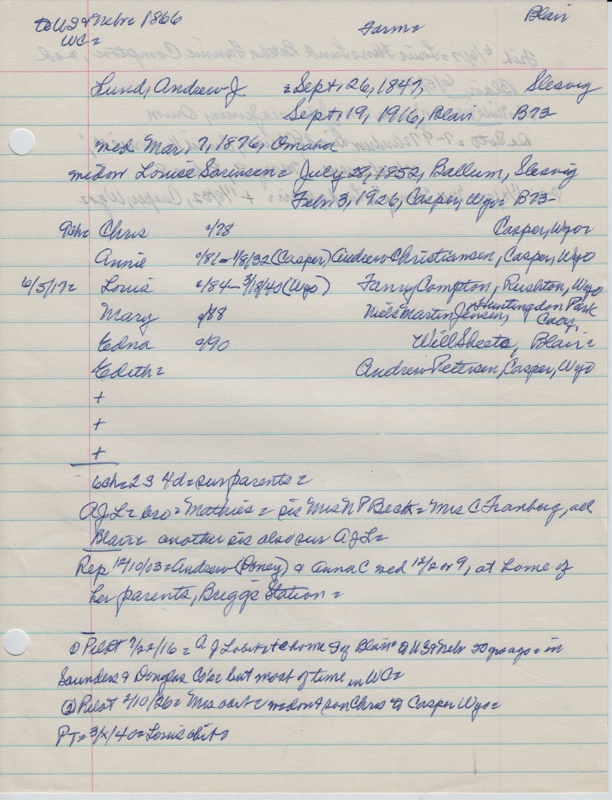 to US & Nebr 1866 Farm= Blair
WC=
Lund, Andrew J. = Sept. 26, 1847, Slesvig
Sept. 19, 1916, Blair B73
med Mar. 7, 1876, Omaha
Louise Sorensen = July 28, 1852, Ballum, Slesvig
Febr. 3, 1926, Casper, Wyo= B73
9ch= Chris 0/78 Casper, Wyo=
Annie 0/81 - 1/8/32 (Casper) Andrew Christiansen, Casper, Wyo
6/5/17= Louis 0/84 - 3/18/40 (Wyo) Fanny Compton, Wyo
Mary 0/88 Niels Martin Jensen, Huntingdon Park
Edna 0/90 Will Sheets, Blair=
Edith= Andrew Petersen, Casper, Wyo
+
+
+
6ch=2s 4d=sur parents=
AJL= bro= Mathies= sis Mrs N P Beck= Mrs C Franberg, all
Blair= another sis also sur AJL=
Rep 12/10/03= Andrew & Anna C med 12/2 or 9, at home of
her parents, Briggs Station=
① Pilot 9/22/16= A J L obit= & home of Blair= to US & Nebr 50 yrs ago= in
Saunders & Douglas Co's= but most of time in WC=
② Pilot 2/10/26= Mrs obit= & son Chris to Casper Wyo=
PT= 3/x/40= Louis obit=